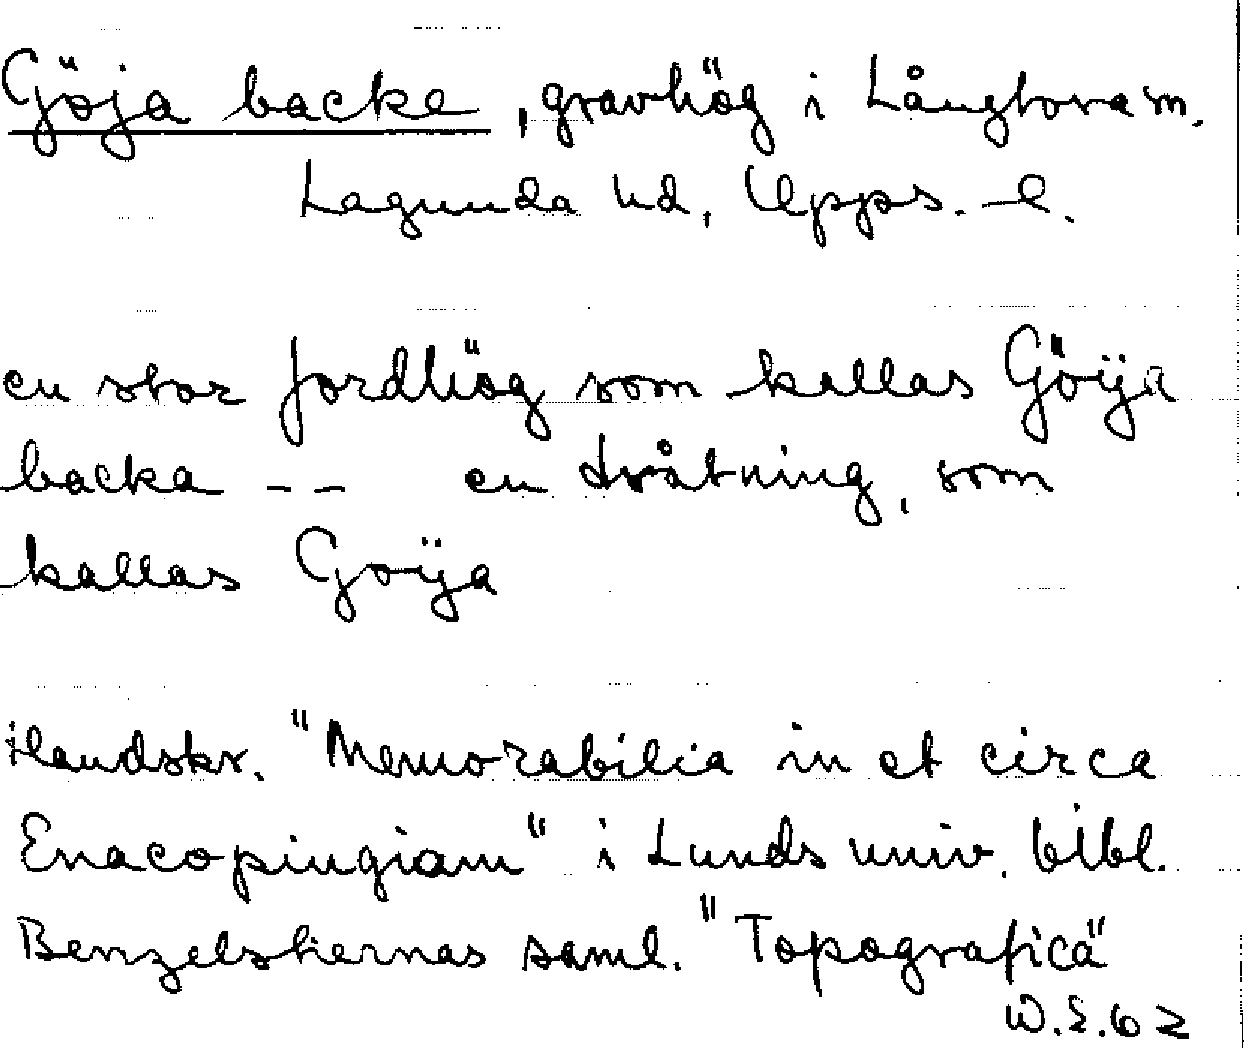 Göja backe, gravhög i Långtora sn.
Lagunda hd, Upps. l.
en stor jordhög som kallas Göija
backa -- en dråtning, som
kallas Göija
Handskr. "Memorabilia in et circa
Enacopingiam" i Lunds univ. bibl.
Benzelstiernas saml. "Topografica"
W.E.62